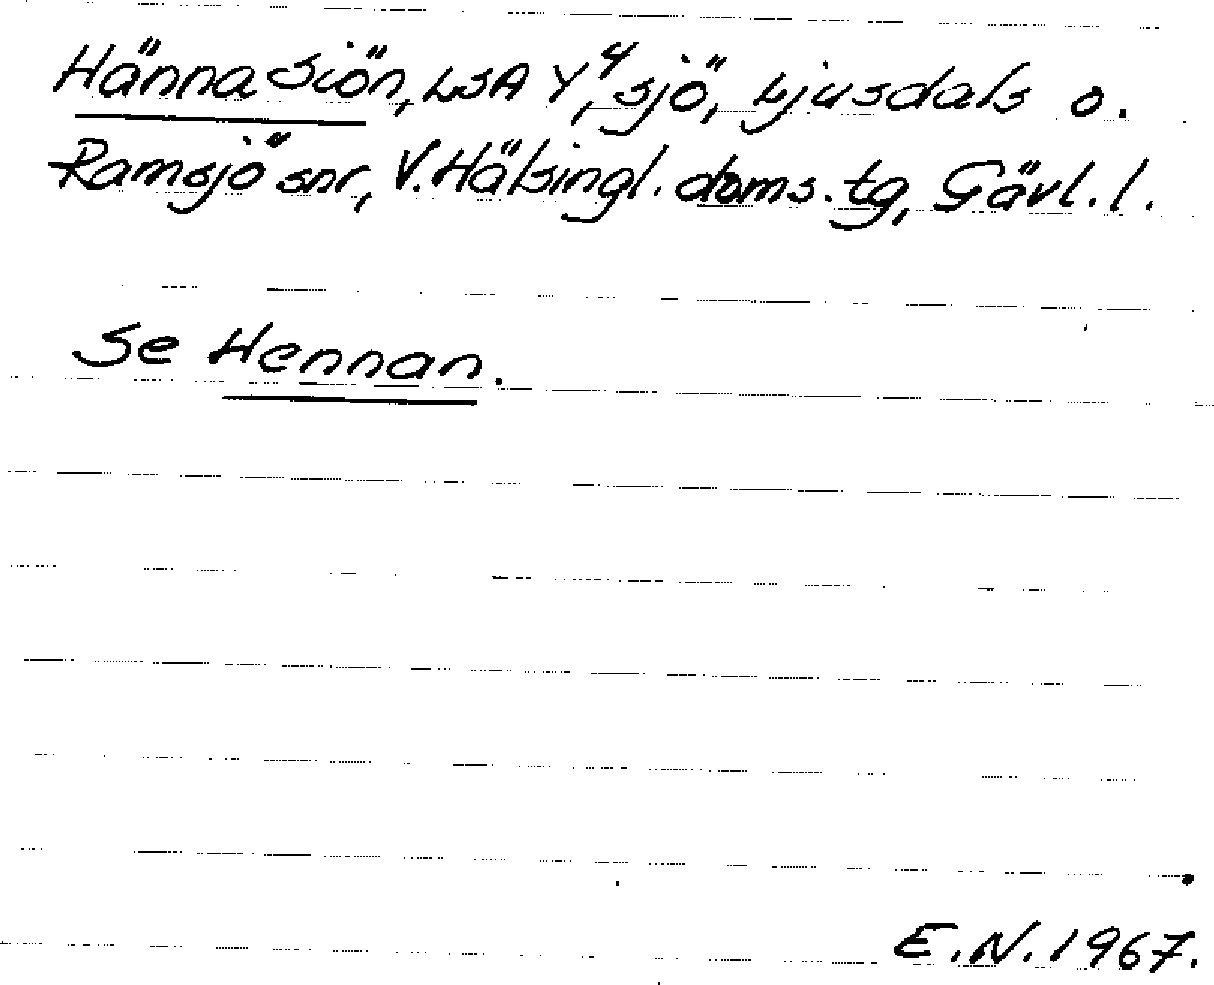 Hänna Siön, LSA Y⁴, sjö, Ljusdals o.
Ramsjö snr, V. Hälsingl. doms. tg, Gävl. l.
Se Hennan.
E.N. 1967.